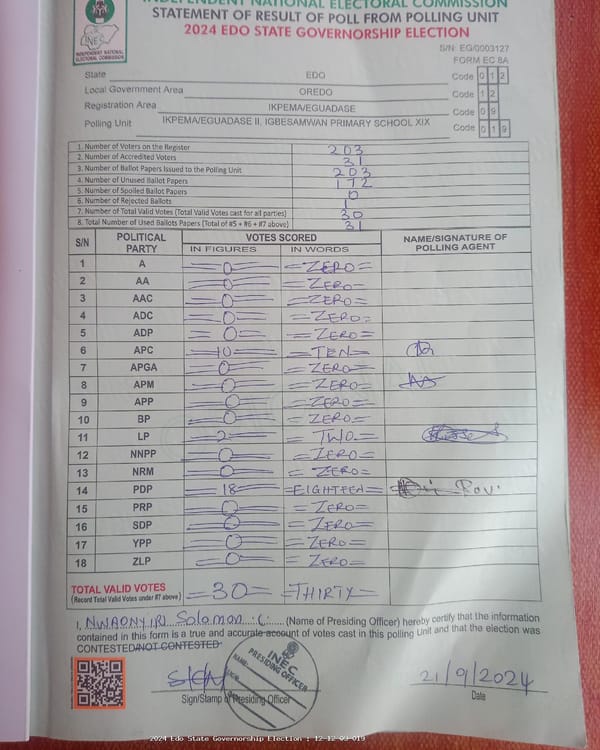 INDEPENDENT NATIONAL ELECTORAL COMMISSION
STATEMENT OF RESULT OF POLL FROM POLLING UNIT
2024 EDO STATE GOVERNORSHIP ELECTION
INEC
INDEPENDENT NATIONAL
ELECTORAL COMMISSION
S/N: EG/0003127
FORM EC 8A
State EDO Code 0 1 2
Local Government Area OREDO Code 1 2
Registration Area IKPEMA/EGUADASE Code 0 9
Polling Unit IKPEMA/EGUADASE II, IGBESAMWAN PRIMARY SCHOOL XIX Code 0 1 9
1. Number of Voters on the Register 203
2. Number of Accredited Voters 31
3. Number of Ballot Papers Issued to the Polling Unit 203
4. Number of Unused Ballot Papers 172
5. Number of Spoiled Ballot Papers 0
6. Number of Rejected Ballots 1
7. Number of Total Valid Votes (Total Valid Votes cast for all parties) 30
8. Total Number of Used Ballots Papers (Total of #5 + #6 + #7 above) 31
S/N POLITICAL PARTY VOTES SCORED NAME/SIGNATURE OF POLLING AGENT
IN FIGURES IN WORDS
1 A =0= =ZERO=
2 AA =0= =ZERO=
3 AAC =0= =ZERO=
4 ADC =0= =ZERO=
5 ADP =0= =ZERO=
6 APC =10= =TEN=
7 APGA =0= =ZERO=
8 APM =0= =ZERO=
9 APP =0= =ZERO=
10 BP =0= =ZERO=
11 LP =2= =TWO=
12 NNPP =0= =ZERO=
13 NRM =0= =ZERO=
14 PDP =18= =EIGHTEEN=
15 PRP =0= =ZERO=
16 SDP =0= =ZERO=
17 YPP =0= =ZERO=
18 ZLP =0= =ZERO=
TOTAL VALID VOTES =30= =THIRTY=
(Record Total Valid Votes under #7 above)
I, NWAONYIRI Solomon .C. (Name of Presiding Officer) hereby certify that the information
contained in this form is a true and accurate account of votes cast in this polling Unit and that the election was
CONTESTED/NOT CONTESTED
INEC
PRESIDING OFFICER
21/9/2024
Sign/Stamp of Presiding Officer Date
2024 Edo State Governorship Election : 12-12-09-019